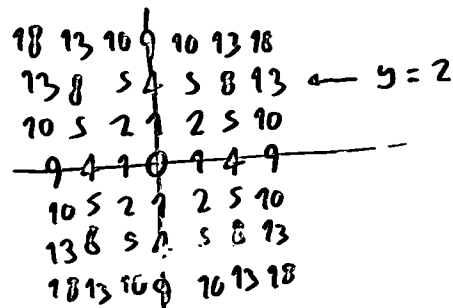 18 13 10 9 10 13 18
13 8 5 4 5 8 13 ← y = 2
10 5 2 1 2 5 10
9 4 1 0 1 4 9
10 5 2 1 2 5 10
13 8 5 4 5 8 13
18 13 10 9 10 13 18